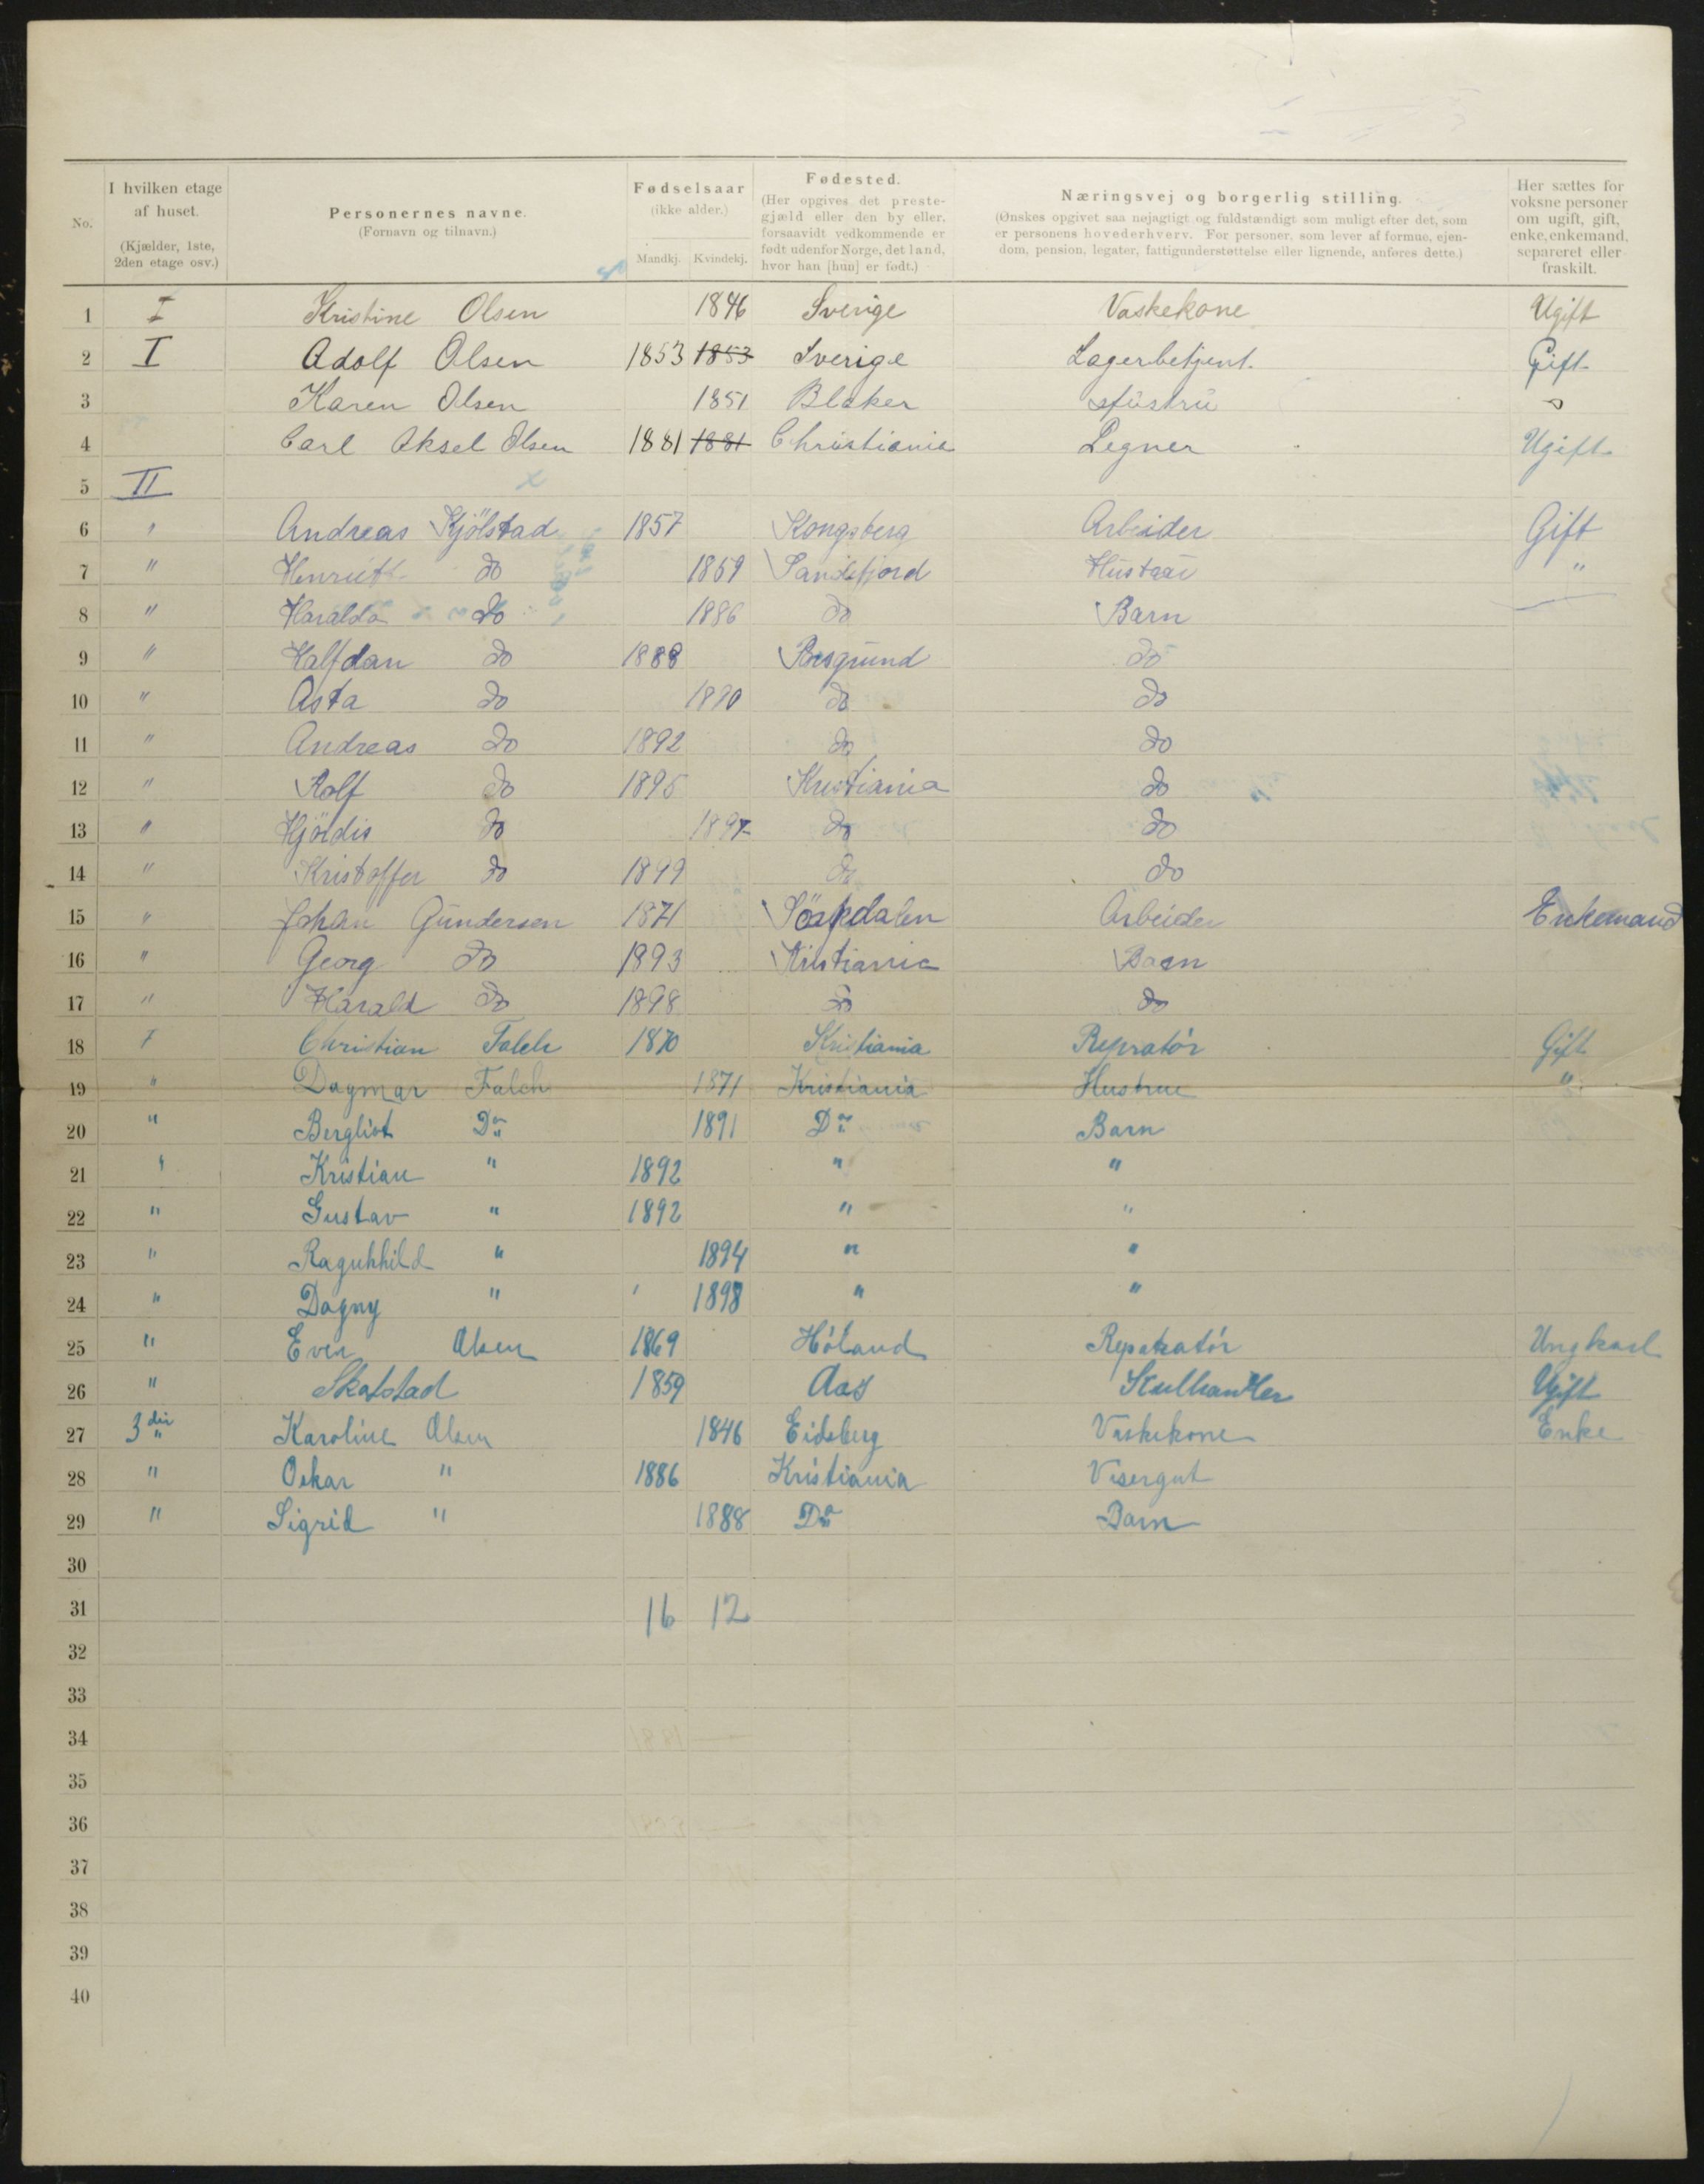 No.
I hvilken etage af huset. (Kjælder, 1ste, 2den etage osv.)
Personernes navne. (Fornavn og tilnavn.)
Fødselsaar (ikke alder.) Mandkj. Kvindekj.
Fødested. (Her opgives det prestegjæld eller den by eller, forsaavidt vedkommende er født udenfor Norge, det land, hvor han [hun] er født.)
Næringsvej og borgerlig stilling. (Ønskes opgivet saa nøjagtigt og fuldstændigt som muligt efter det, som er personens hovederhverv. For personer, som lever af formue, ejendom, pension, legater, fattigunderstøttelse eller lignende, anføres dette.)
Her sættes for voksne personer om ugift, gift, enke, enkemand, separeret eller fraskilt.
1 I Kristine Olsen 1846 Sverige Vaskekone Ugift
2 I Adolf Olsen 1853 1853 Sverige Lagerbetjent. Gift
3 Karen Olsen 1851 Blaker Hüstrü
4 Carl Aksel Olsen 1881 1881 Christiania Tegner Ugift
5 II
6 " Andreas Kjölstad 1857 Kongsberg Arbeider Gift
7 " do 1859 Sandefjord Hüstrü "
8 " Haralda do 1886 do Barn
9 " Halfdan do 1888 Porsgrund do
10 " Asta do 1890 do do
11 " Andreas do 1892 do do
12 " Rolf do 1895 Kristiania do
13 " Hjördis do 1897 do do
14 " Kristoffer do 1899 do do
15 " Johan Gündersen 1871 Sörkdalen Arbeider Enkemand
16 " Georg do 1893 Kristiania Barn
17 " Harald do 1898 do do
18 Christian Falch 1870 Kristiania Repratór Gift
19 " Dagmar Falch 1871 Kristiania Hustrue "
20 " Bergliot Do 1891 Do Barn
21 " Kristian " 1892 " "
22 " Gustav " 1892 " "
23 " Ragnhhild " 1894 " "
24 " Dagny " 1898 " "
25 " Even Olsen 1869 Hóland Reparatór Ungkarl
26 " Skatstad 1859 Aas Kulhandler Ugift
27 3die " Karoline Olsen 1846 Eidsberg Vaskekone Enke
28 " Oskar " 1886 Kristiania Visergut
29 " Sigrid " 1888 Do Barn
30
31 16 12
32
33
34
35
36
37
38
39
40